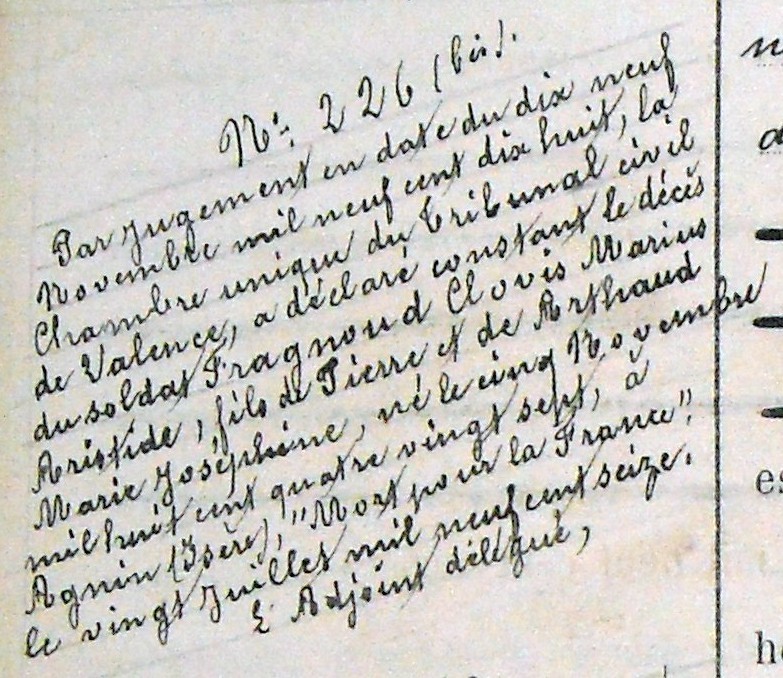 N° 226 (bis).
Par jugement en date du dix neuf
Novembre mil neuf cent dix huit, la
Chambre unique du Tribunal civil
de Valence, a déclaré constant le décès
du soldat Fragnoud Clovis Marius
Aristide, fils de Pierre et de Arthaud
Marie Joséphine, né le cinq Novembre
mil huit cent quatre vingt sept, à
Agnin (Isère), "Mort pour la France",
le vingt Juillet mil neuf cent seize.
L'Adjoint délégué,